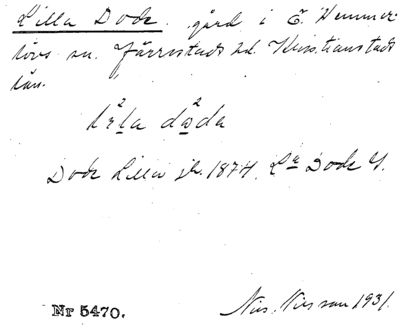 Lilla Dode gård i Ö. Hemmes-
lövs sn. Järrestads hd. Kristianstads
län.
Dode Lilla jb. 1874. La Dode 4.
Nr 5470. Nils Nilsson 1931.